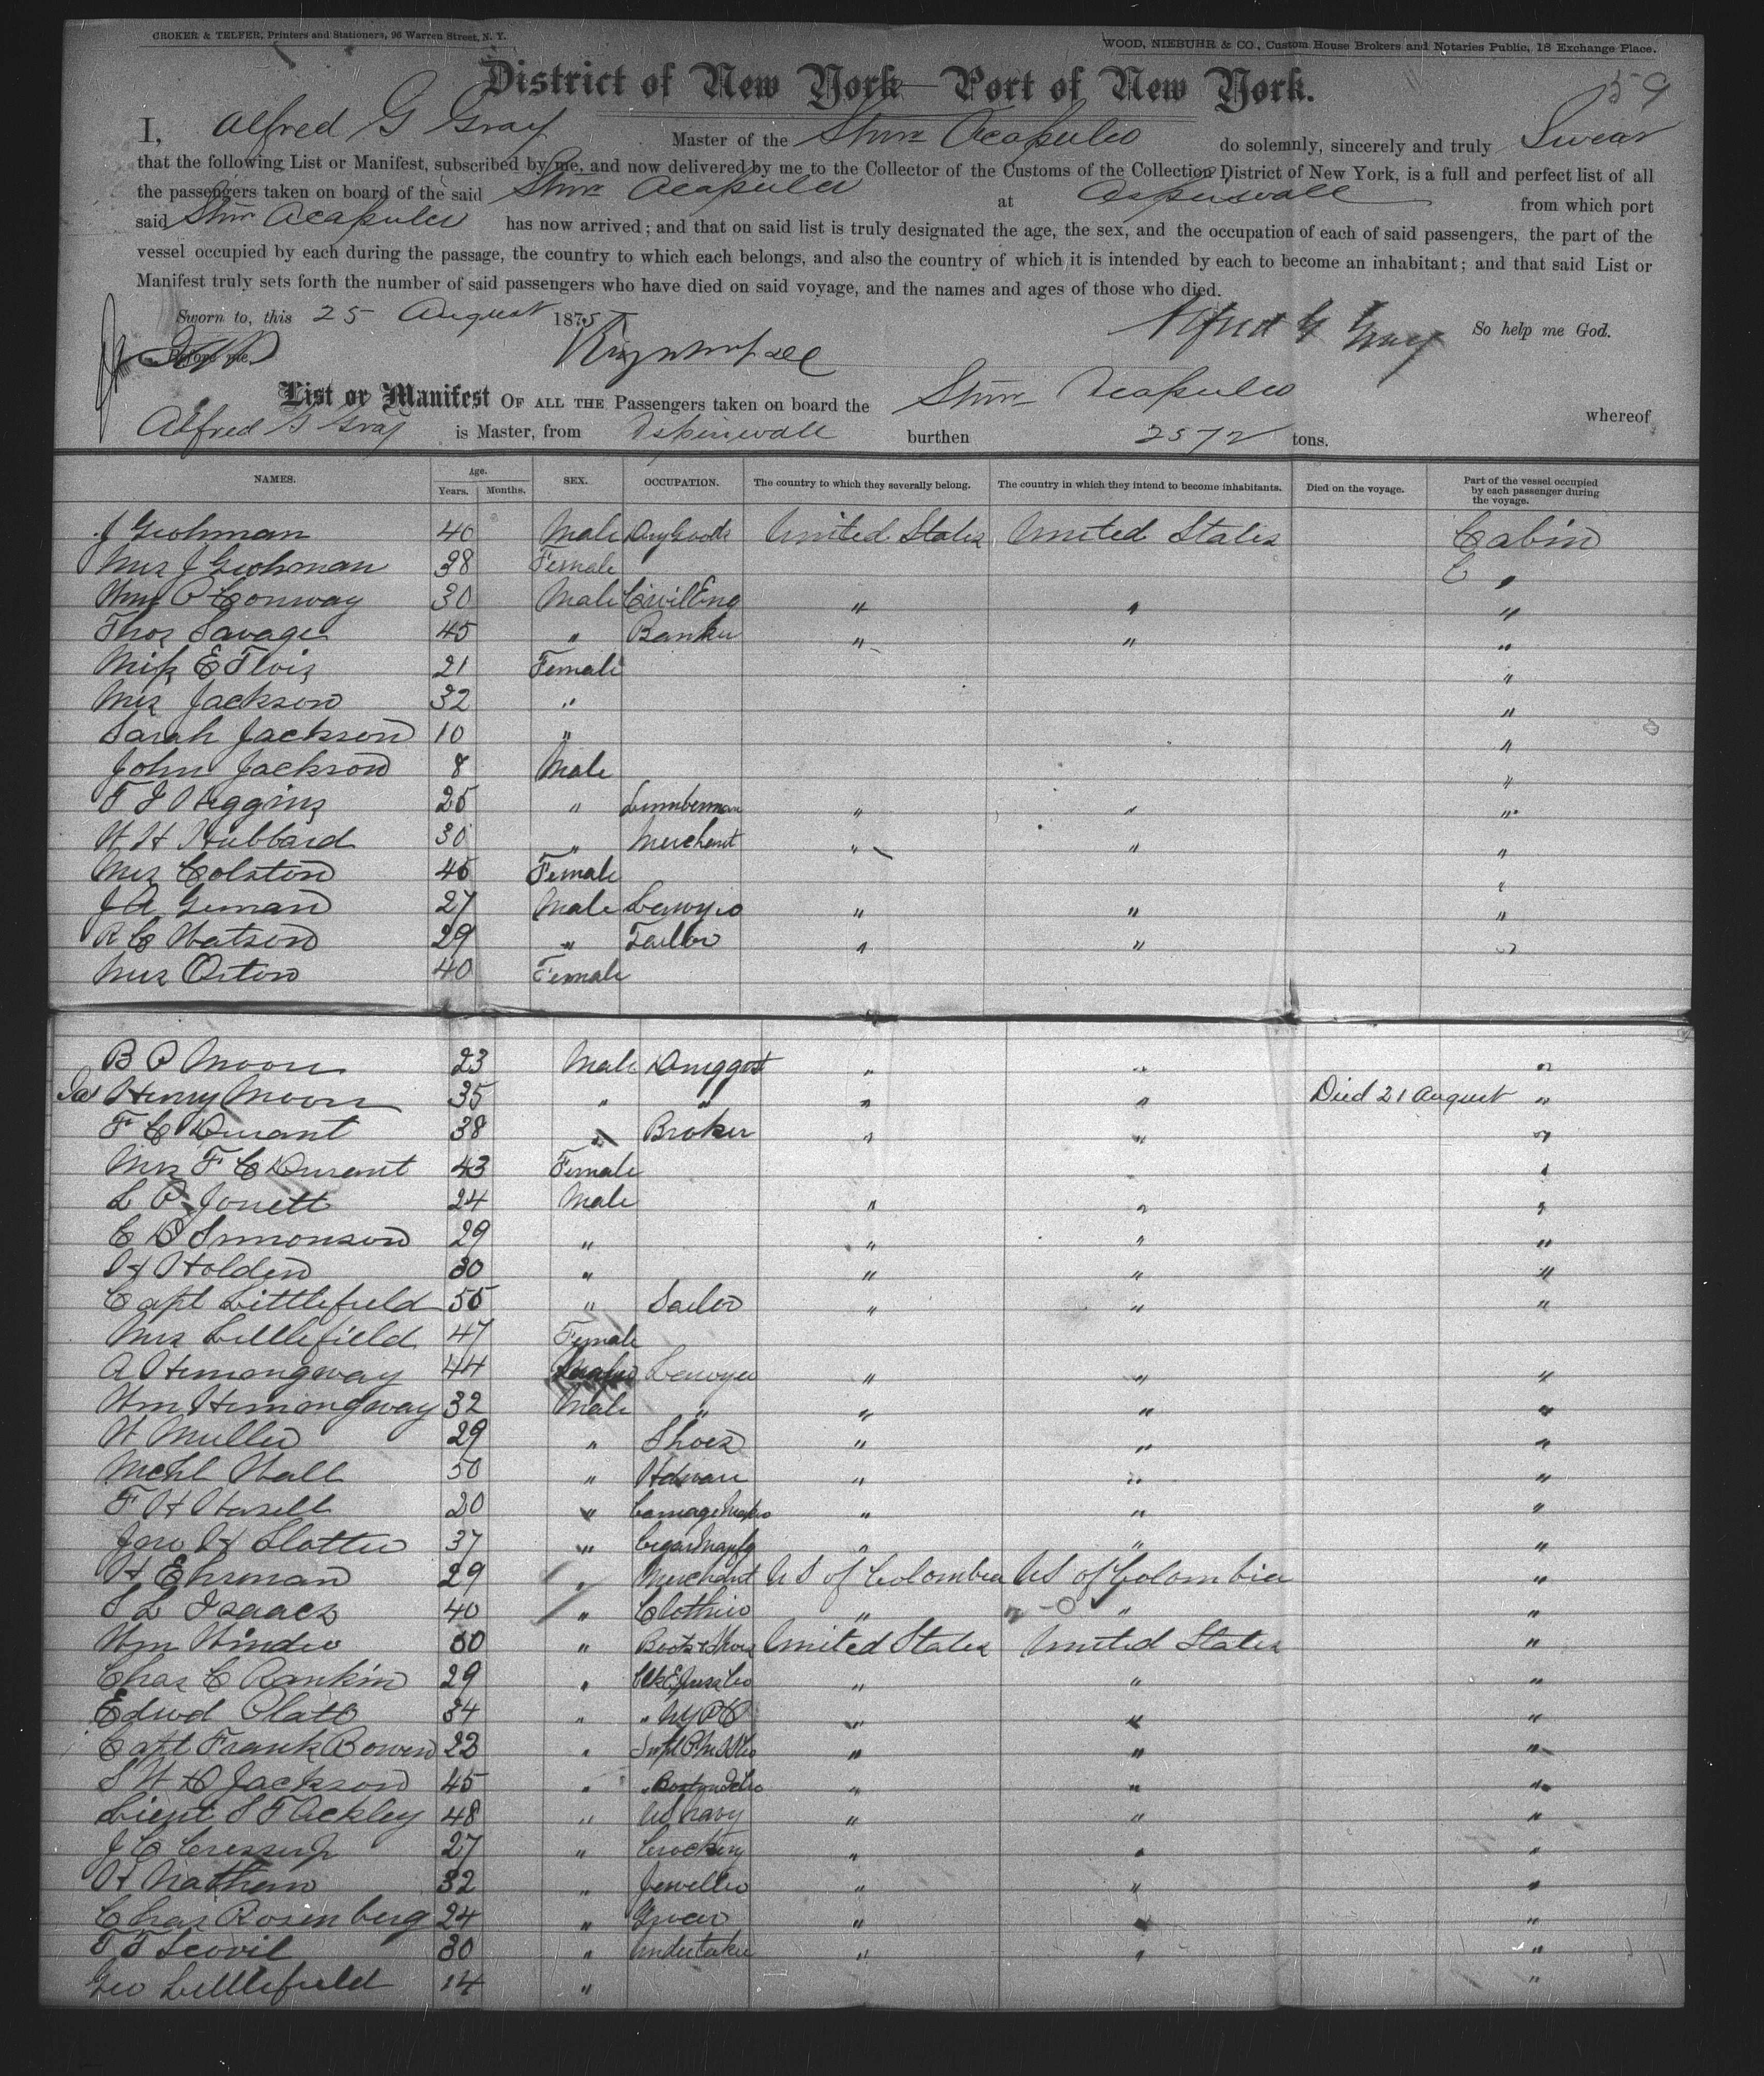 CROKER & TELFER, Printers and Stationers, 96 Warren Street, N. Y.
WOOD, NIEBUHR & CO., Custom House Brokers and Notaries Public, 18 Exchange Place.
District of New York — Port of New York.
59
I, Alfred G Gray Master of the Stmr Acapulco do solemnly, sincerely and truly Swear
that the following List or Manifest, subscribed by me, and now delivered by me to the Collector of the Customs of the Collection District of New York, is a full and perfect list of all
the passengers taken on board of the said Stmr Acapulco at Aspinwall from which port
said Stmr Acapulco has now arrived; and that on said list is truly designated the age, the sex, and the occupation of each of said passengers, the part of the
vessel occupied by each during the passage, the country to which each belongs, and also the country of which it is intended by each to become an inhabitant; and that said List or
Manifest truly sets forth the number of said passengers who have died on said voyage, and the names and ages of those who died.
Sworn to, this 25 August 1875 Alfred G Gray So help me God.
Before me,
List or Manifest OF ALL THE Passengers taken on board the Stmr Acapulco whereof
Alfred G Gray is Master, from Aspinwall burthen 2572 tons.
NAMES. Age. Years. Months. SEX. OCCUPATION. The country to which they severally belong. The country in which they intend to become inhabitants. Died on the voyage. Part of the vessel occupied by each passenger during the voyage.
J Grohman 40 Male Dry Goods United States United States Cabin
Mrs J Grohman 38 Female C "
Wm P Conway 30 Male Civil Eng " " "
Thos Savage 45 " Banker " " "
Miss E 21 Female "
Mrs Jackson 32 " "
Sarah Jackson 10 " "
John Jackson 8 Male "
F J Higgins 25 " Lumberman " " "
W H Hubbard 30 " Merchant " " "
Mrs Colston 45 Female "
J A 27 Male Lawyer " " "
R C Watson 29 " Tailor " " "
Mrs Orton 40 Female
B P Moore 23 Male Druggist " " "
Jas Henry Moore 35 " " " " Died 21 August "
F C Durant 38 " Broker " " "
Mrs F C Durant 43 Female "
L P Jouett 24 Male " " "
C D Simonson 29 " " " "
H Holden 30 " " " "
Capt Littlefield 55 " Sailor " " "
Mrs Littlefield 47 Female
A Hemongway 44 Lawyer " " "
Wm Hemongway 32 Male " " " "
W Muller 29 " Shoes " " "
Mchl Hall 50 " Hdware " " "
F H 20 " Carriage Maker " " "
37 " Cigar Manfg " " "
H Ehrman 29 " Merchant US of Colombia US of Colombia "
S L Isaacs 40 " Clothier " " "
Wm Winder 30 " Boots & Shoes United States United States "
Chas C Rankin 29 " " " "
Edwd Platt 34 " " " "
Capt Frank Bowen 23 " " " "
S W D Jackson 45 " " " "
Lieut S F Ackley 48 " US Navy " " "
J C 27 " Crockery " " "
H Nathan 32 " Jeweller " " "
Chas Rosenberg 24 " Grocer " " "
F F Scovil 30 " Undertaker " " "
Geo Littlefield 14 " "